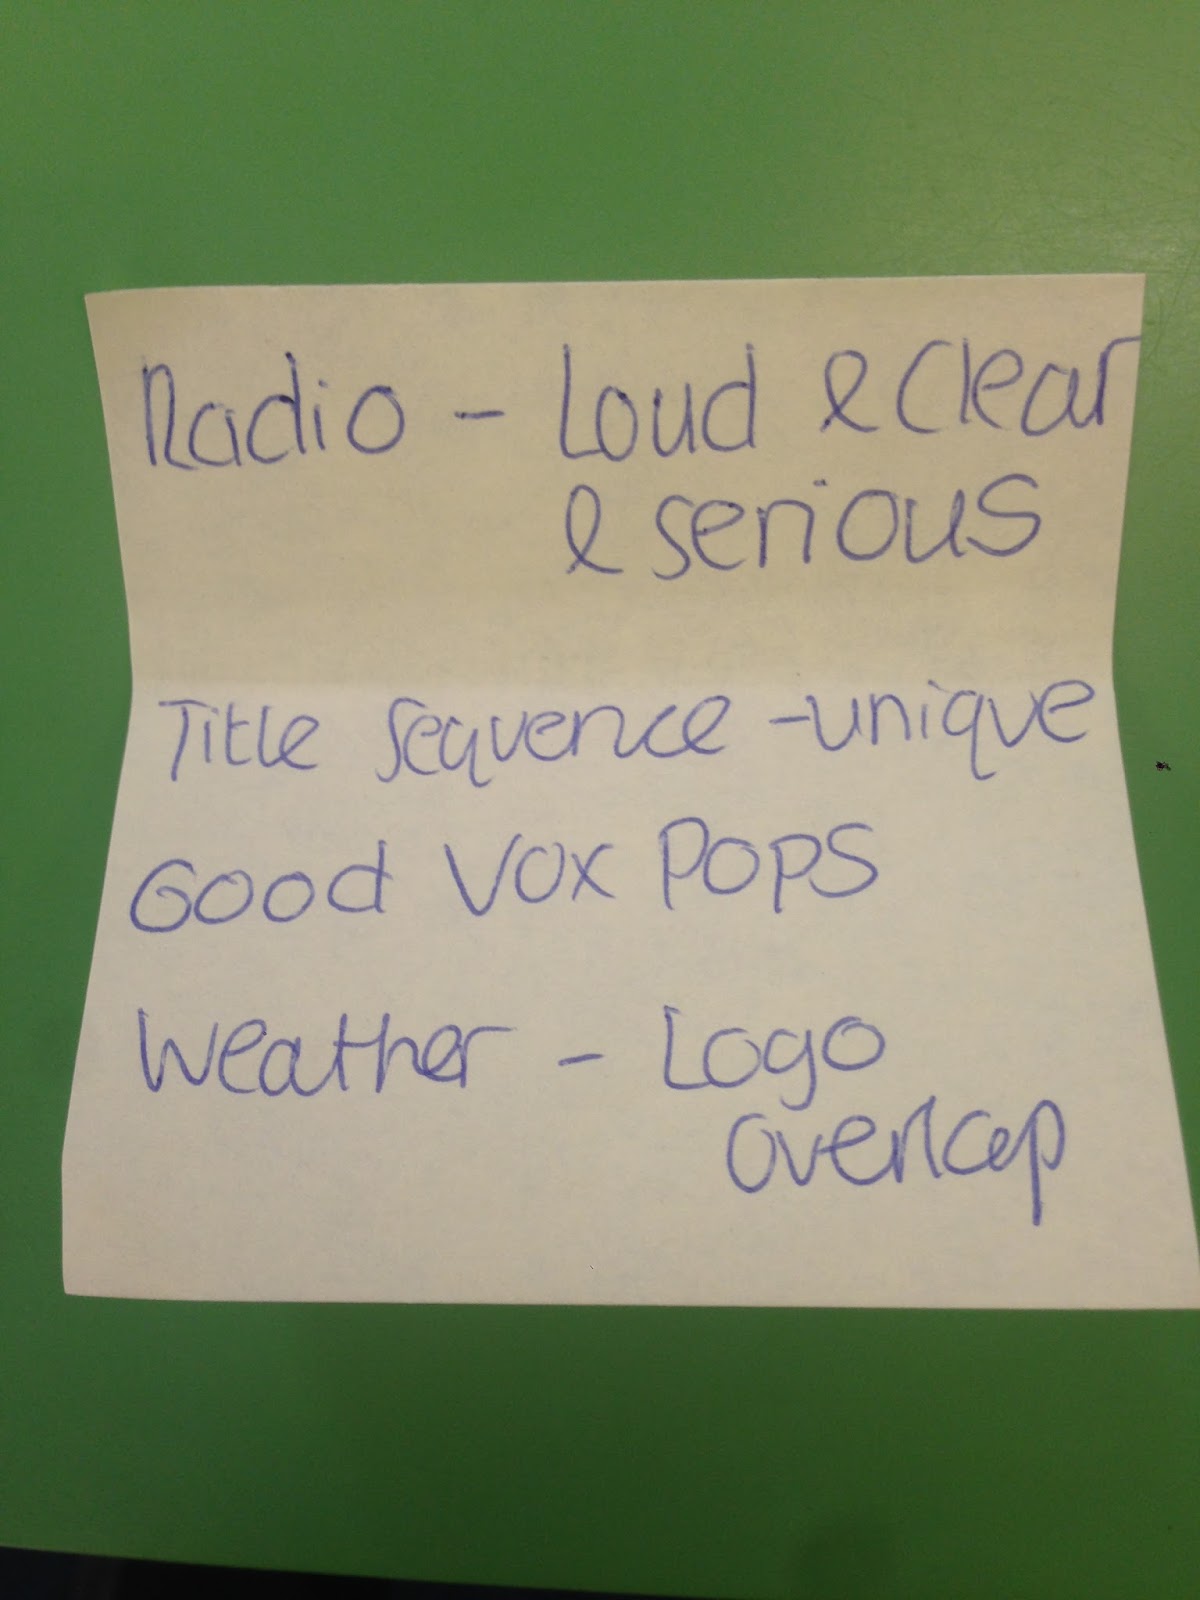 Radio - Loud & Clear
& serious
Title Sequence - unique
Good Vox Pops
Weather - Logo
overlap